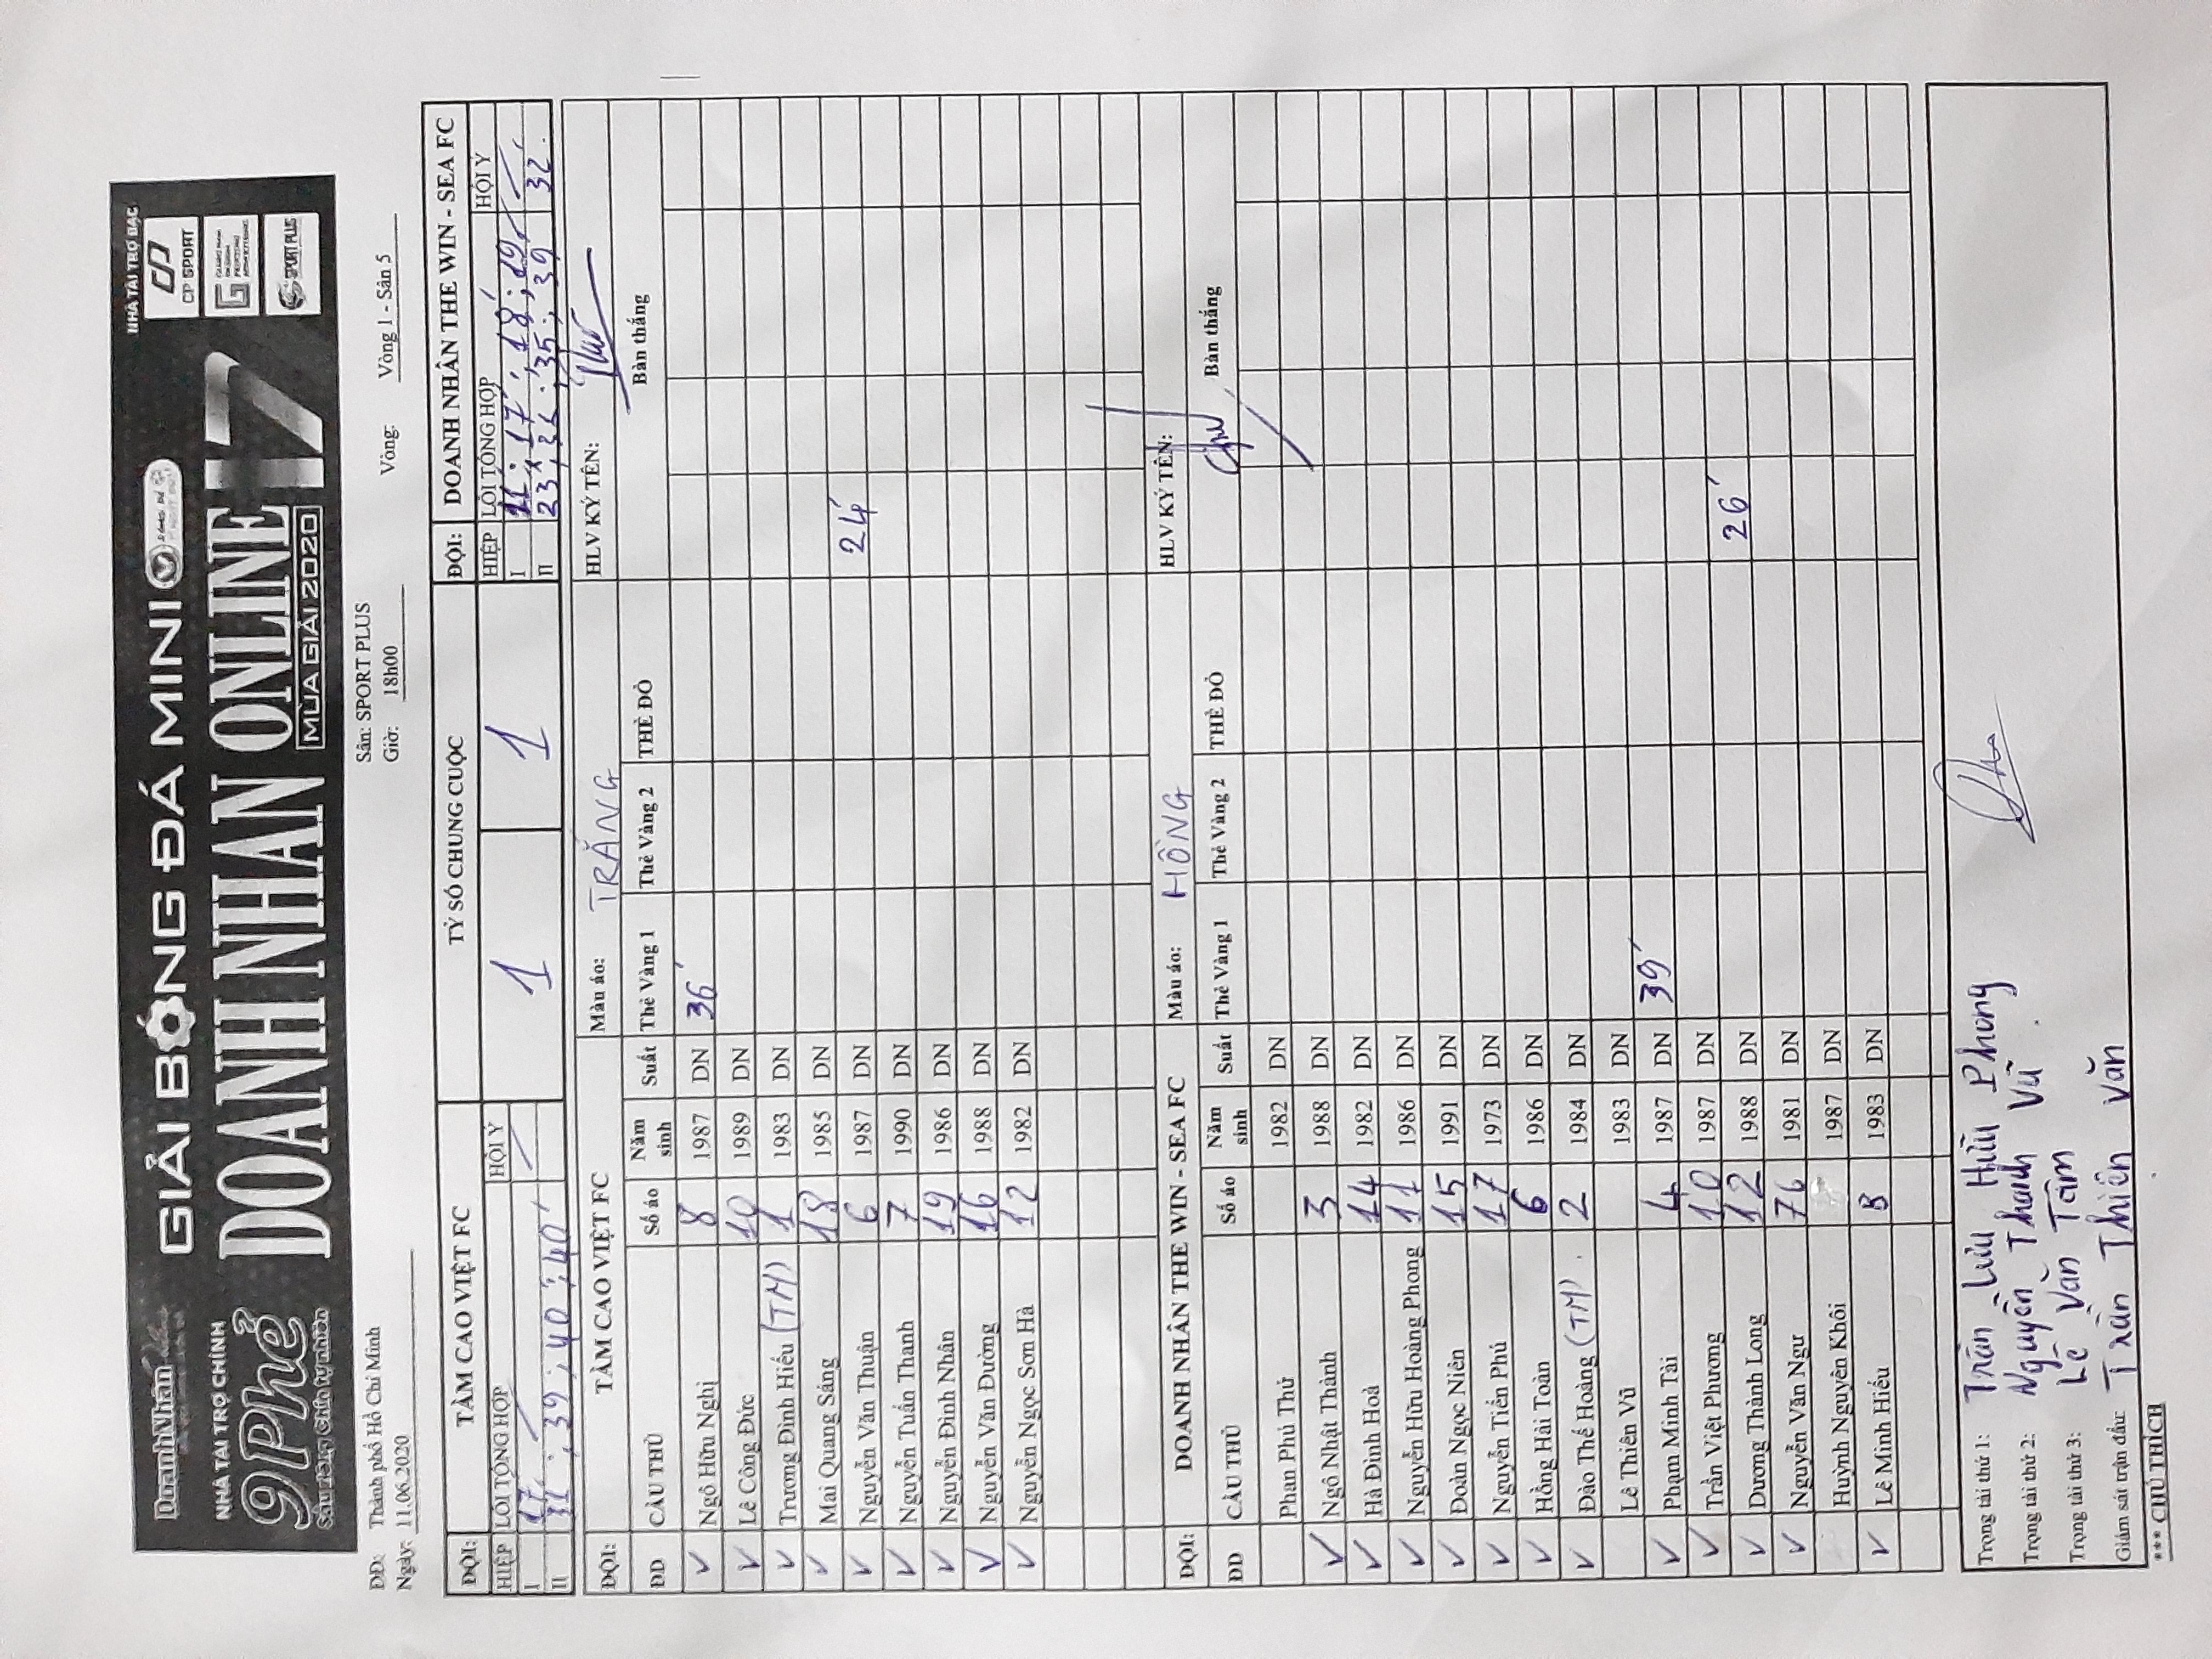 DoanhNhân
NHÀ TÀI TRỢ CHÍNH
9Phẻ
GIẢI BÓNG ĐÁ MINI
DOANH NHÂN ONLINE 17
MÙA GIẢI 2020
NHÀ TÀI TRỢ BẠC
CP SPORT
SPORT PLUS
ĐĐ: Thành phố Hồ Chí Minh Sân: SPORT PLUS
Ngày: 11.06.2020 Giờ: 18h00 Vòng: Vòng 1 - Sân 5
ĐỘI: TÂM CAO VIỆT FC TỶ SỐ CHUNG CUỘC ĐỘI: DOANH NHÂN THE WIN - SEA FC
HIỆP LỖI TỔNG HỢP HỘI Ý 1 1 HIỆP LỖI TỔNG HỢP HỘI Ý
I 17' I 11' 17' 18' 19'
II 31' 39' 40' 40' II 23' 26' 35' 39 32'
ĐỘI: TÂM CAO VIỆT FC Màu áo: TRẮNG HLV KÝ TÊN:
ĐD CẦU THỦ Số áo Năm sinh Suất Thẻ Vàng 1 Thẻ Vàng 2 THẺ ĐỎ Bàn thắng
✓ Ngô Hữu Nghị 8 1987 DN 36'
✓ Lê Công Đức 10 1989 DN
✓ Trương Đình Hiếu (TM) 1 1983 DN
✓ Mai Quang Sáng 18 1985 DN 24'
✓ Nguyễn Văn Thuận 6 1987 DN
✓ Nguyễn Tuấn Thanh 7 1990 DN
✓ Nguyễn Đình Nhân 19 1986 DN
✓ Nguyễn Văn Đường 16 1988 DN
✓ Nguyễn Ngọc Sơn Hà 12 1982 DN
ĐỘI: DOANH NHÂN THE WIN - SEA FC Màu áo: HỒNG HLV KÝ TÊN:
ĐD CẦU THỦ Số áo Năm sinh Suất Thẻ Vàng 1 Thẻ Vàng 2 THẺ ĐỎ Bàn thắng
Phan Phú Thứ 1982 DN
✓ Ngô Nhật Thành 3 1988 DN
✓ Hà Đình Hoà 14 1982 DN
✓ Nguyễn Hữu Hoàng Phong 11 1986 DN
✓ Đoàn Ngọc Niên 15 1991 DN
✓ Nguyễn Tiến Phú 17 1973 DN
✓ Hồng Hải Toàn 6 1986 DN
✓ Đào Thế Hoàng (TM) 2 1984 DN
Lê Thiên Vũ 1983 DN
✓ Phạm Minh Tài 4 1987 DN 39'
✓ Trần Việt Phương 10 1987 DN
✓ Dương Thành Long 12 1988 DN 26'
✓ Nguyễn Văn Ngư 76 1981 DN
Huỳnh Nguyên Khôi 1987 DN
✓ Lê Minh Hiếu 8 1983 DN
Trọng tài thứ 1: Trần Lưu Hữu Phong
Trọng tài thứ 2: Nguyễn Thanh Vũ
Trọng tài thứ 3: Lê Văn Tâm
Giám sát trận đấu: Trần Thiên Văn
*** CHÚ THÍCH